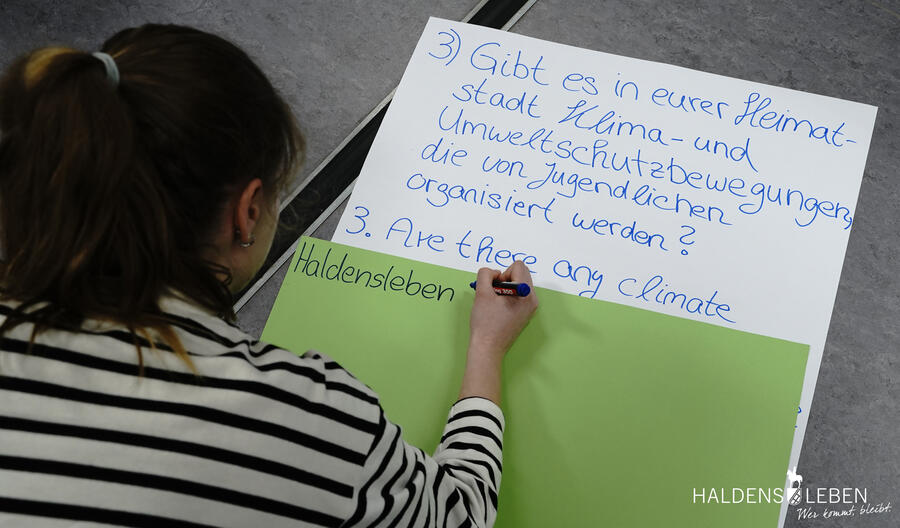 3) Gibt es in eurer Heimat-
stadt Klima- und
Umweltschutzbewegungen,
die von Jugendlichen
organisiert werden?
3. Are there any climate
Haldensleben
HALDENSLEBEN
Wer kommt, bleibt.